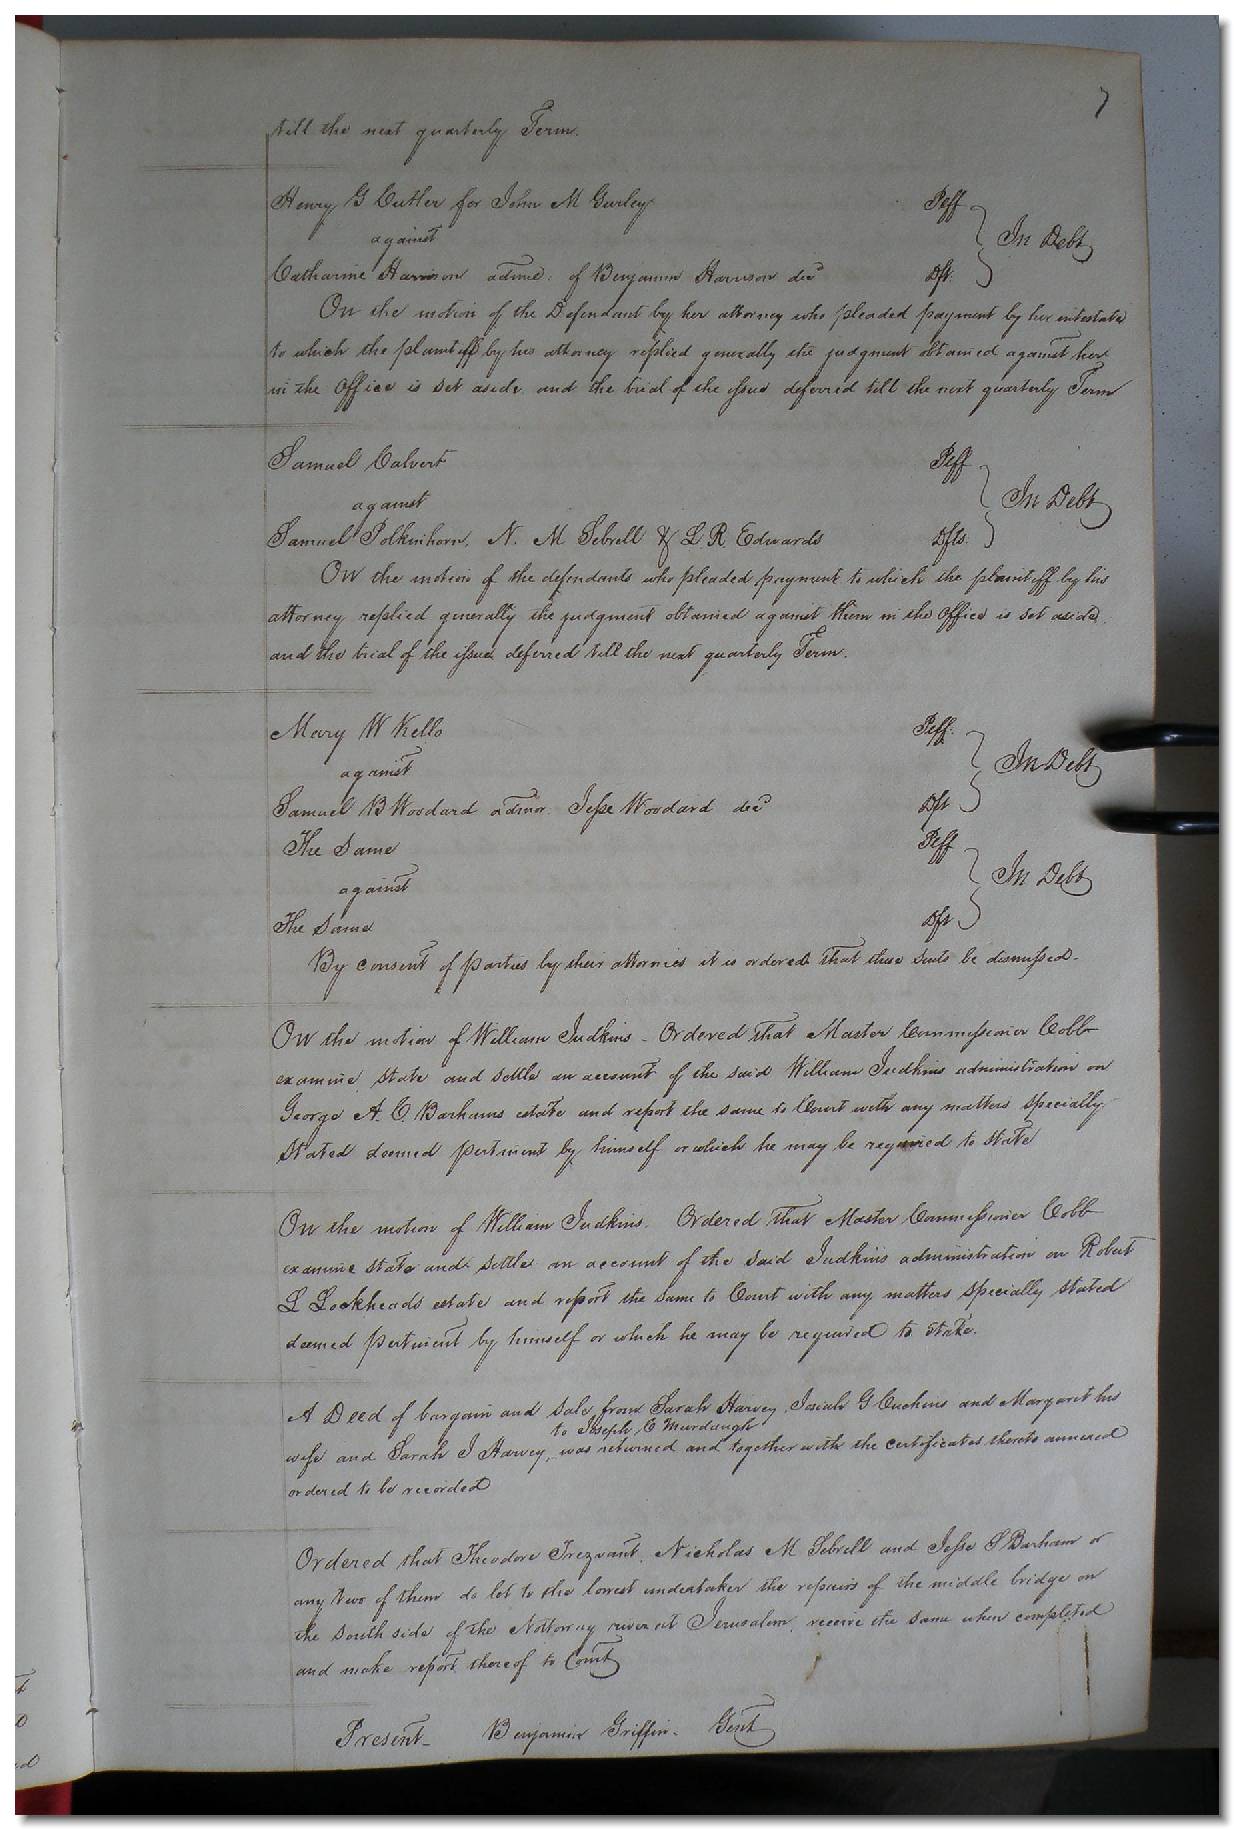 7
till the next quarterly Term.
Henry G Cutler for John M Gurley Plff
against In Debt
Catharine Harrison admx. of Benjamin Harrison decd Dft.
On the motion of the Defendant by her attorney who pleaded payment by her intestate
to which the plaintiff by his attorney replied generally the judgment obtained against her
in the Office is set aside and the trial of the issue deferred till the next quarterly Term
Samuel Calvert Plff
against In Debt
Samuel Polkinhorn, N. M Sebrell & L R. Edwards Dfts.
On the motion of the defendants who pleaded payment to which the plaintiff by his
attorney replied generally the judgment obtained against them in the Office is set aside
and the trial of the issue deferred till the next quarterly Term.
Mary W Kello Plff.
against In Debt
Samuel B Woodard admor. Jesse Woodard decd Dft
The Same Plff
against In Debt
The Same Dft
By consent of parties by their attornies it is ordered that these suits be dismissed.
On the motion of William Judkins - Ordered that Master Commissioner Cobb
examine state and settle an account of the said William Judkins administration on
George A. C. Barhams estate and report the same to Court with any matters specially
Stated deemed pertinent by himself or which he may be required to State
On the motion of William Judkins. Ordered that Master Commissioner Cobb
examine state and settle an account of the said Judkins administration on Robert
L Lockheads estate and report the same to Court with any matters specially stated
deemed pertinent by himself or which he may be required to state.
A Deed of bargain and sale from Sarah Harvey, Josiah G Cuchins and Margaret his
to Joseph C Murdaugh
wife and Sarah J Harvey, was returned and together with the certificates thereto annexed
ordered to be recorded
Ordered that Theodore Trezvant, Nicholas M Sebrell and Jesse S Barham or
any two of them do let to the lowest undertaker the repairs of the middle bridge on
the south side of the Nottoway river at Jerusalem, receive the same when completed
and make report thereof to Court
Present - Benjamin Griffin - Gent